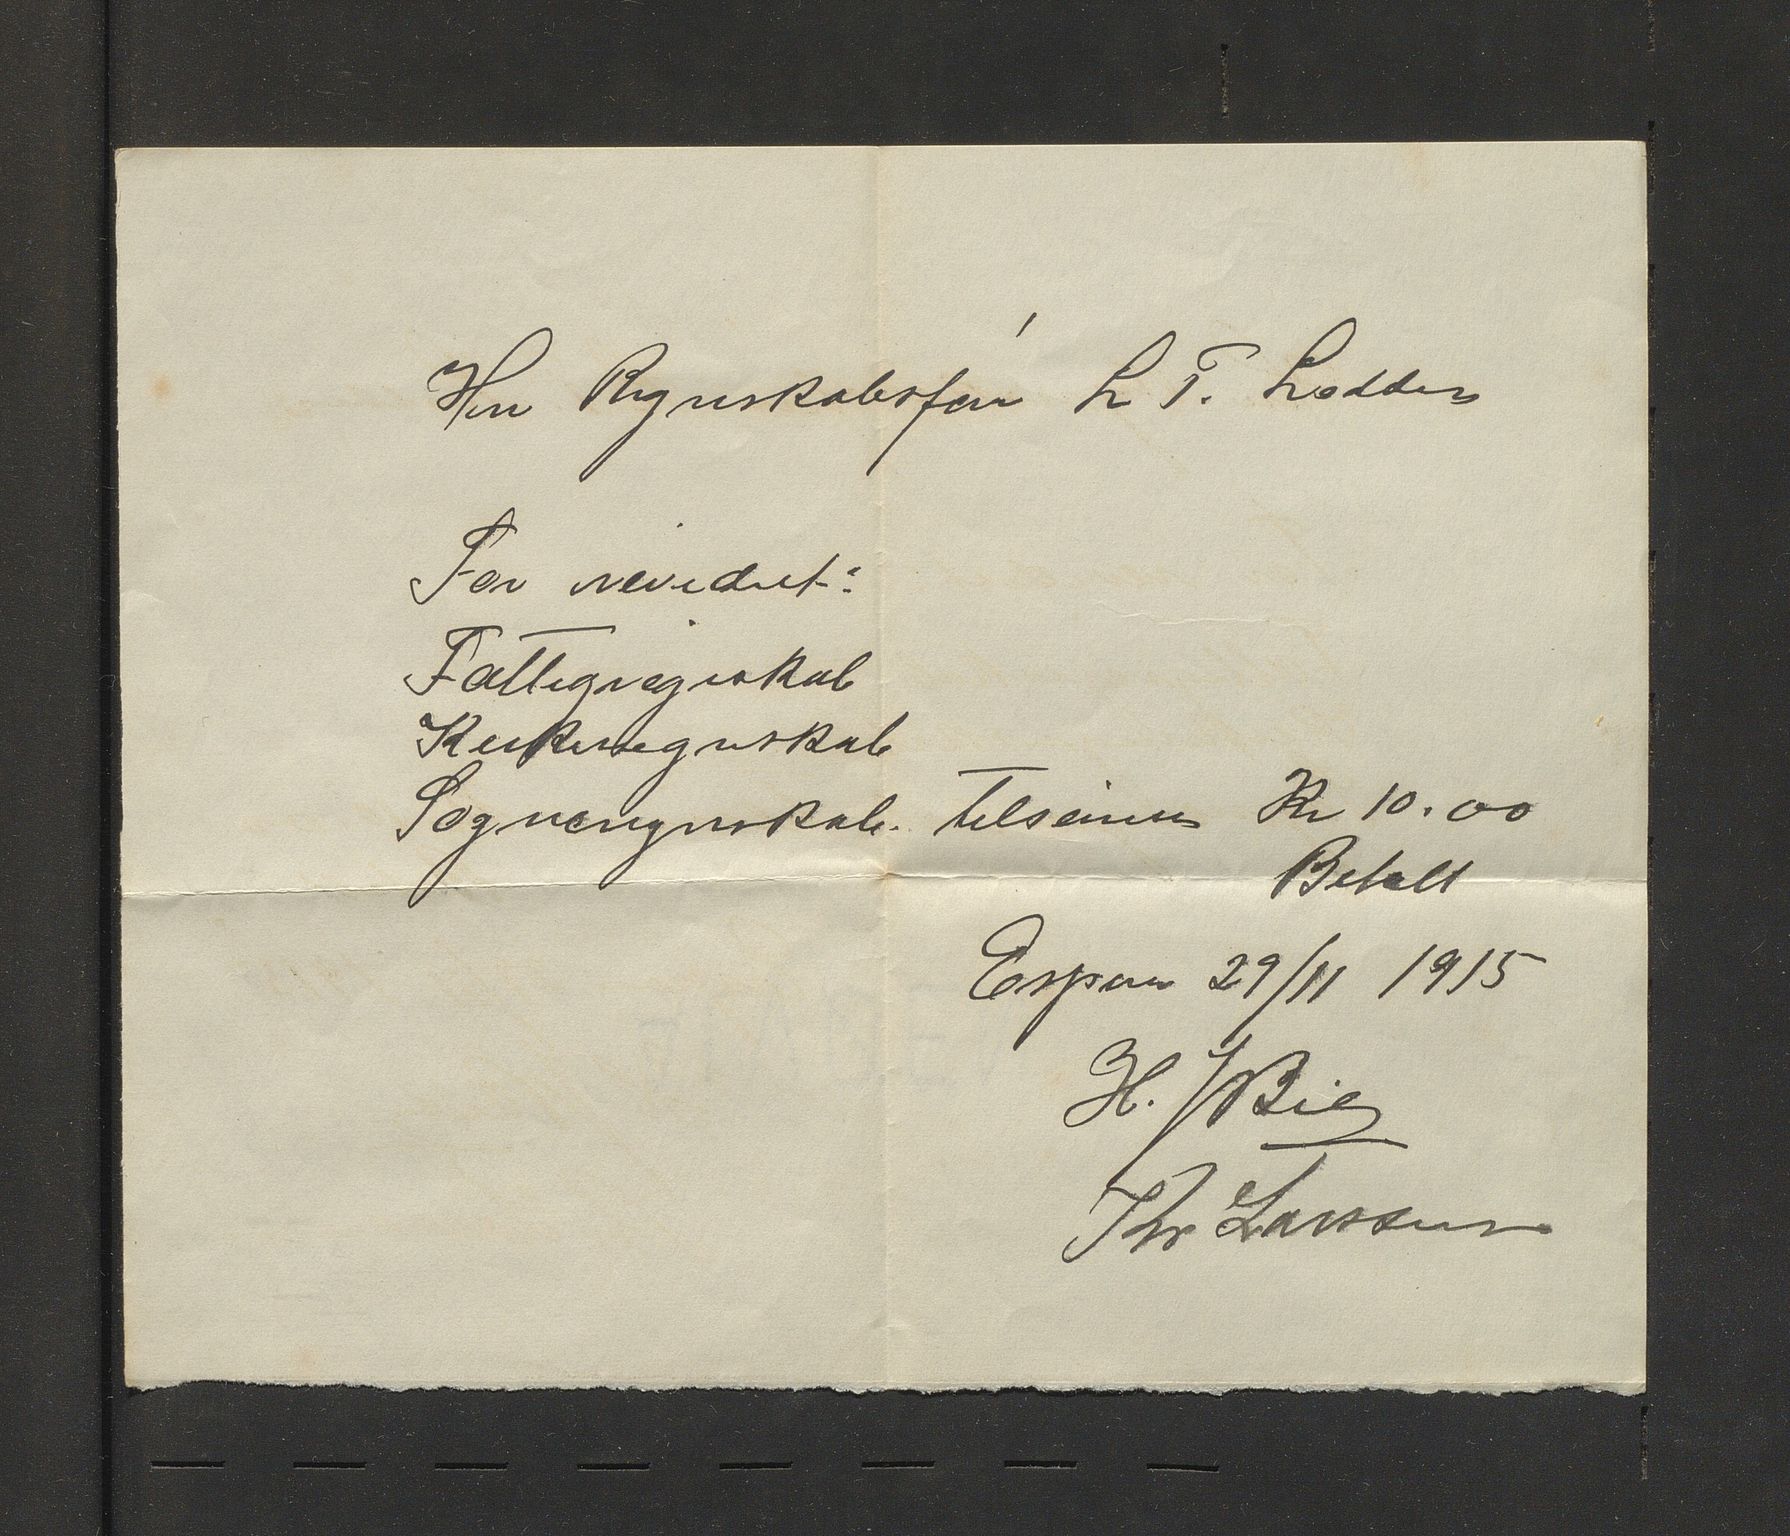 Herr Regnskabsfør L T. Lødden
For revidert:
Fattigregnskab
Kirkeregnskab
Sogneregnskab. tilsammen Kr 10.00
Betalt
Espøen 29/11 1915
H. J Bie
Thv Larssen